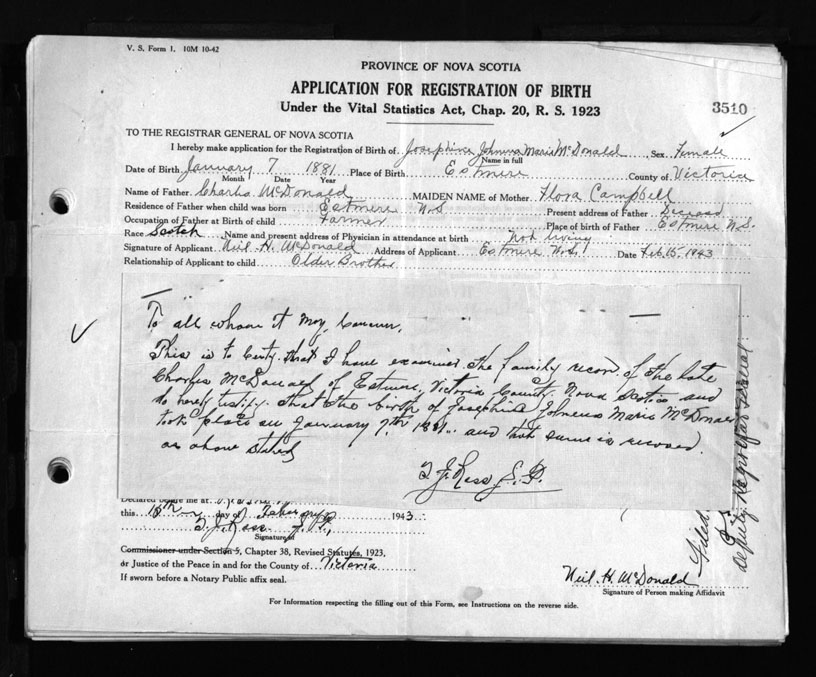 V. S. Form 1. 10M 10-42
PROVINCE OF NOVA SCOTIA
APPLICATION FOR REGISTRATION OF BIRTH
Under the Vital Statistics Act, Chap. 20, R. S. 1923
3510
TO THE REGISTRAR GENERAL OF NOVA SCOTIA
I hereby make application for the Registration of Birth of Josephine Johnena Marie McDonald, Sex Female
Name in full
Date of Birth January 7 1881 Place of Birth Estmere County of Victoria
Month Date Year
Name of Father Charles McDonald MAIDEN NAME of Mother Flora Campbell
Residence of Father when child was born Estmere N.S Present address of Father
Occupation of Father at Birth of child Farmer Place of Birth of Father Estmere N.S.
Race Scotch Name and present address of Physician in attendance at birth Not living
Signature of Applicant Neil H. McDonald Address of Applicant Estmere N.S. Date Feb. 15, 1943
Relationship of Applicant to child Older Brother
To all whom it may concern,
This is to that I have examined the family record of the late
Charles McDonald of Estmere, Victoria County, Nova Scotia and
do hereby testify that the birth of Josephine Johnena Marie McDonald
took place on January 7th 1881. and that same is
as above stated
J. Ross J. P.
Declared before me at
this 15th day of 1943
J. Ross J. P.
Signature of
Commissioner under Section 5, Chapter 38, Revised Statutes, 1923,
or Justice of the Peace in and for the County of Victoria
If sworn before a Notary Public affix seal.
Neil. H. McDonald
Signature of Person making Affidavit
For Information respecting the filling out of this Form, see Instructions on the reverse side.
Filed
Deputy Registrar General